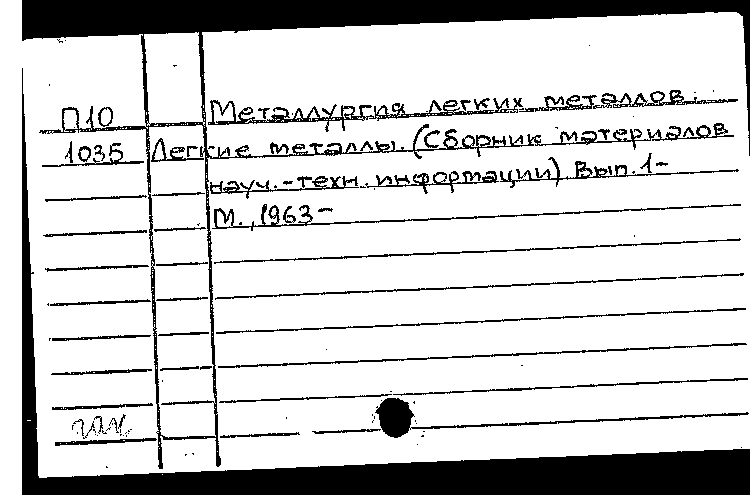 П10 Металлургия легких металлов.
1035 Легкие металлы. (Сборник материалов
науч.-техн. информации) Вып. 1-
М., 1963-